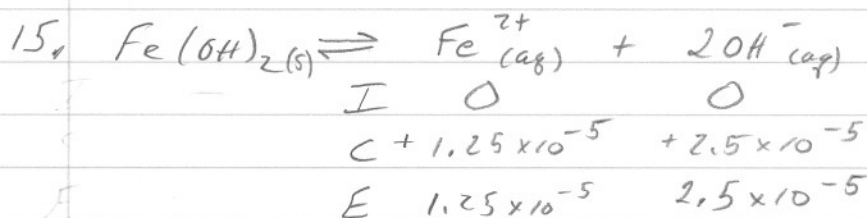 15. Fe(OH)₂(s) ⇌ Fe²⁺(aq) + 2OH⁻(aq)
I 0 0
C +1.25×10⁻⁵ +2.5×10⁻⁵
E 1.25×10⁻⁵ 2.5×10⁻⁵